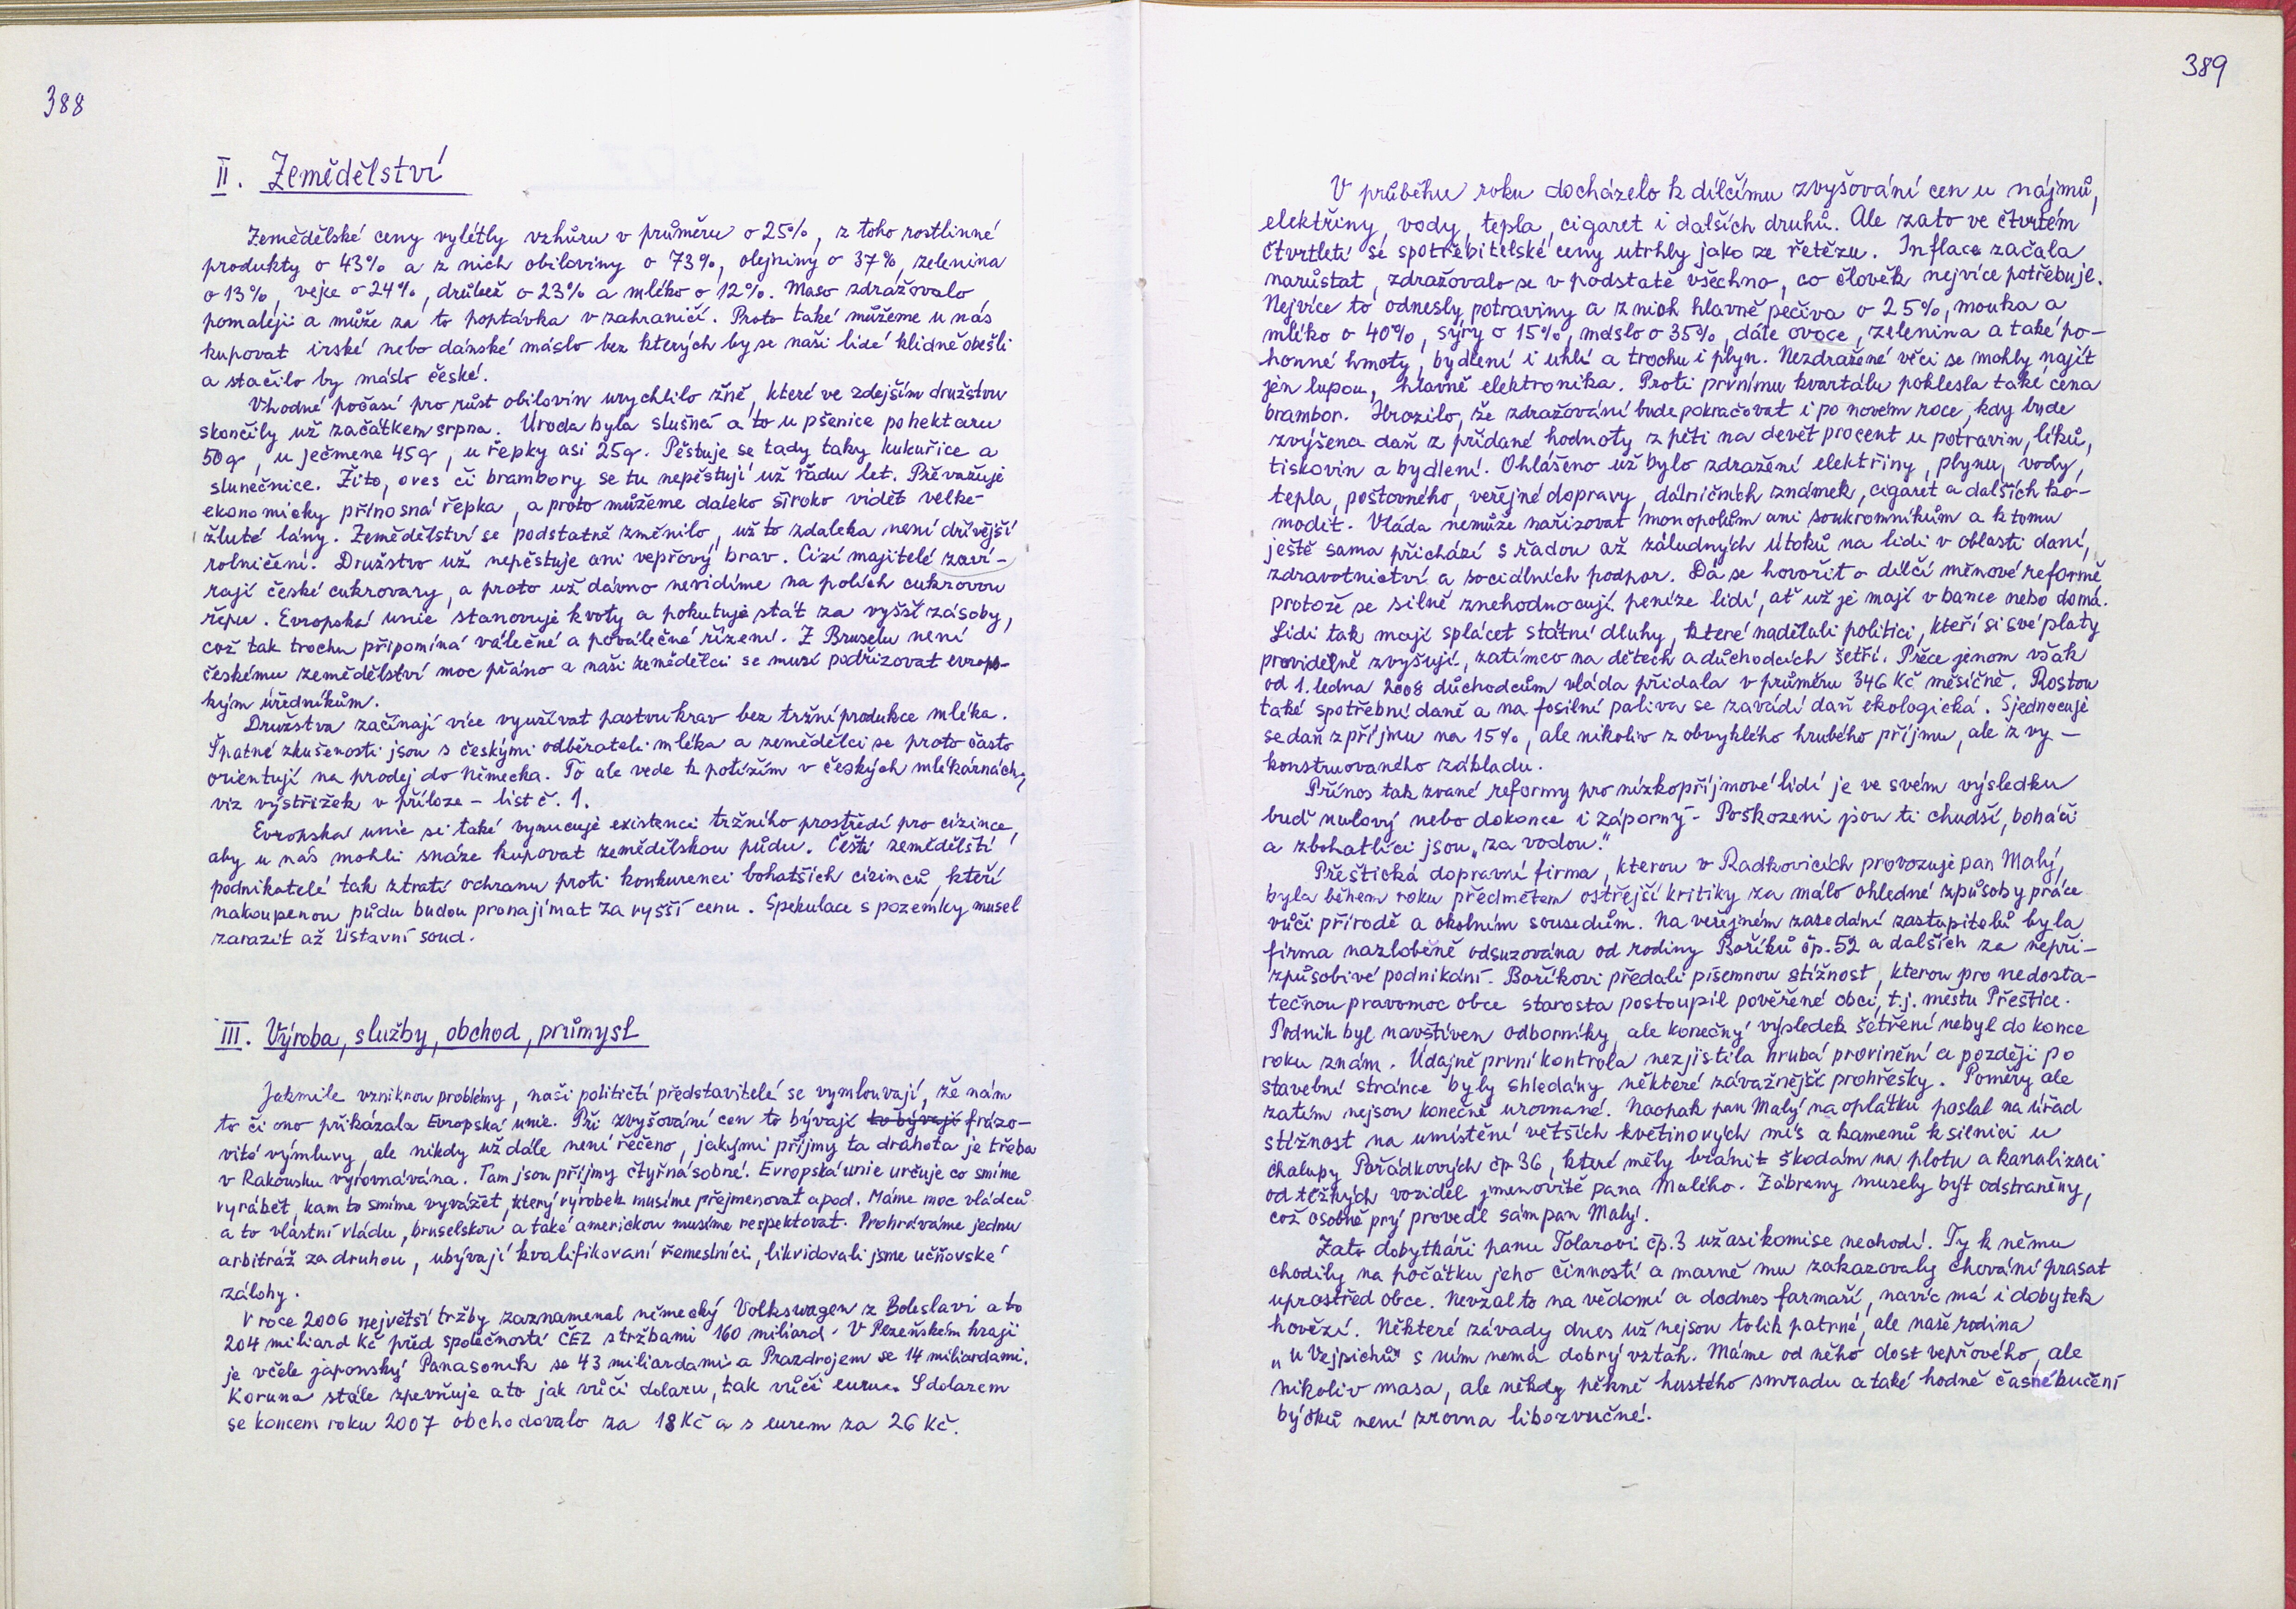 388
II. Zemědělství
Zemědělské ceny vylétly vzhůru v průměru o 25%, z toho rostlinné
produkty o 43% a z nich obiloviny o 73%, olejniny o 37%, zelenina
o 13%, vejce o 24%, drůbež o 23% a mléko o 12%. Maso zdražovalo
pomaleji a může za to poptávka v zahraničí. Proto také můžeme u nás
kupovat irské nebo dánské máslo bez kterých by se naši lidé klidně obešli
a stačilo by máslo české.
Vhodné počasí pro růst obilovin urychlilo žně, které ve zdejším družstvu
skončily už začátkem srpna. Úroda byla slušná a to u pšenice po hektaru
50q, u ječmene 45q, u řepky asi 25q. Pěstuje se tady taky kukuřice a
slunečnice. Žito, oves či brambory se tu nepěstují už řádu let. Převažuje
ekonomicky přínosná řepka, a proto můžeme daleko široko vidět velké
žluté lány. Zemědělství se podstatně změnilo, už to zdaleka není dřívější
rolničení. Družstvo už nepěstuje ani vepřový brav. Cizí majitelé zaví-
rají české cukrovary, a proto už dávno nevidíme na polích cukrovou
řepu. Evropská unie stanovuje kvoty a pokutuje stát za vyšší zásoby,
což tak trochu připomíná válečné a poválečné řízení. Z Bruselu není
českému zemědělství moc přáno a naši zemědělci se musí podřizovat evrops-
kým úředníkům.
Družstva začínají více využívat pastvu krav bez tržní produkce mléka.
Špatné zkušenosti jsou s českými odběrateli mléka a zemědělci se proto často
orientují na prodej do Německa. To ale vede k potížím v českých mlékárnách,
viz výstřižek v příloze - list č. 1.
Evropská unie si také vynucuje existenci tržního prostředí pro cizince,
aby u nás mohli snáze kupovat zemědělskou půdu. Čeští zemědělští
podnikatelé tak ztratí ochranu proti konkurenci bohatších cizinců, kteří
nakoupenou půdu budou pronajímat za vyšší cenu. Spekulace s pozemky musel
zarazit až Ústavní soud.
III. Výroba, služby, obchod, průmysl
Jakmile vzniknou problémy, naši političtí představitelé se vymlouvají, že nám
to či ono přikázala Evropská unie. Při zvyšování cen to bývají to bývají frázo-
vité výmluvy, ale nikdy už dále není řečeno, jakými příjmy ta drahota je třeba
v Rakousku vyrovnávána. Tam jsou příjmy čtyřnásobné. Evropská unie určuje co smíme
vyrábět, kam to smíme vyvážet, který výrobek musíme přejmenovat apod. Máme moc vládců
a to vlastní vládu, bruselskou a také americkou musíme respektovat. Prohráváme jednu
arbitráž za druhou, ubývají kvalifikovaní řemeslníci, likvidovali jsme učňovské
zálohy.
V roce 2006 největší tržby zaznamenal německý Volkswagen z Boleslavi a to
204 miliard Kč před společností ČEZ s tržbami 160 miliard. V Plzeňském kraji
je včele japonský Panasonik se 43 miliardami a Prazdrojem se 14 miliardami.
Koruna stále zpevňuje a to jak vůči dolaru, tak vůči euru. S dolarem
se koncem roku 2007 obchodovalo za 18 Kč a s eurem za 26 Kč.
389
V průběhu roku docházelo k dílčímu zvyšování cen u nájmů,
elektřiny, vody, tepla, cigaret i dalších druhů. Ale zato ve čtvrtém
čtvrtletí se spotřebitelské ceny utrhly jako ze řetězu. Inflace začala
narůstat, zdražovalo se v podstatě všechno, co člověk nejvíce potřebuje.
Nejvíce to odnesly potraviny a z nich hlavně pečiva o 25%, mouka a
mléko o 40%, sýry o 15%, máslo o 35%, dále ovoce, zelenina a také po-
honné hmoty, bydlení i uhlí a trochu i plyn. Nezdražené věci se mohly najít
jen lupou, hlavně elektronika. Proti prvnímu kvartálu poklesla také cena
brambor. Hrozilo, že zdražování bude pokračovat i po novém roce, kdy bude
zvýšena daň z přidané hodnoty z pěti na devět procent u potravin, léků,
tiskovin a bydlení. Ohlášeno už bylo zdražení elektřiny, plynu, vody,
tepla, poštovného, veřejné dopravy, dálničních známek, cigaret a dalších ko-
modit. Vláda nemůže nařizovat monopolům ani soukromníkům a k tomu
ještě sama přichází s řadou až záludných útoků na lidi v oblasti daní,
zdravotnictví a sociálních podpor. Dá se hovořit o dílčí měnové reformě,
protože se silně znehodnocují peníze lidí, ať už je mají v bance nebo doma.
Lidi tak mají splácet státní dluhy, které nadělali politici, kteří si své platy
pravidelně zvyšují, zatímco na dětech a důchodcích šetří. Přece jenom však
od 1. ledna 2008 důchodcům vláda přidala v průměru 346 Kč měsíčně. Rostou
také spotřební daně a na fosilní paliva se zavádí daň ekologická. Sjednocuje
se daň z příjmu na 15%, ale nikoliv z obvyklého hrubého příjmu, ale z vy-
konstruovaného základu.
Přínos tak zvané reformy pro nízkopříjmové lidi je ve svém výsledku
buď nulový nebo dokonce i záporný - Poškozeni jsou ti chudší, boháči
a zbohatlíci jsou „za vodou."
Přeštická dopravní firma, kterou v Radkovicích provozuje pan Malý,
byla během roku předmětem ostřejší kritiky za málo ohledné způsoby práce
vůči přírodě a okolním sousedům. Na veřejném zasedání zastupitelů byla
firma nazlobeně odsuzována od rodiny Boříků čp. 52 a dalších za nepři-
způsobivé podnikání. Boříkovi předali písemnou stížnost, kterou pro nedosta-
tečnou pravomoc obce starosta postoupil pověřené obci, t.j. městu Přeštice.
Podnik byl navštíven odborníky, ale konečný výsledek šetření nebyl do konce
roku znám. Údajně první kontrola nezjistila hrubá provinění a později po
stavební stránce byly shledány některé závažnější prohřešky. Poměry ale
zatím nejsou konečně urovnané. Naopak pan Malý na oplátku poslal na úřad
stížnost na umístění větších květinových mís a kamenů k silnici u
chalupy Pořádkových čp 36, které měly bránit škodám na plotu a kanalizaci
od těžkých vozidel jmenovitě pana Malého. Zábrany musely být odstraněny,
což osobně prý provedl sám pan Malý.
Zato dobytkáři panu Tolarovi čp. 3 už asi komise nechodí. Ty k němu
chodily na počátku jeho činnosti a marně mu zakazovaly chování prasat
uprostřed obce. Nevzal to na vědomí a dodnes farmaří, navíc má i dobytek
hovězí. Některé závady dnes už nejsou tolik patrné, ale naše rodina
„u Vejpichů" s ním nemá dobrý vztah. Máme od něho dost vepřového, ale
nikoliv masa, ale někdy pěkně hustého smradu a také hodně časné bučení
býčků není zrovna libozvučné.